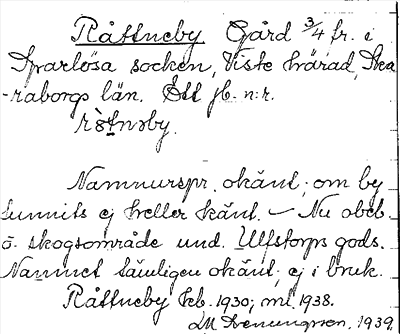 Råttneby Gård 3/4 fr. i
Sparlösa socken, Viste härad, Ska-
raborgs län. Ett jb. n:r.
Namnurspr. okänt; om by
funnits ej heller känt. – Nu obeb.
o. skogsområde und. Ulfstorps gods.
Namnet tämligen okänt; ej i bruk.
Råttneby Eeb. 1930; ml. 1938.
1939.